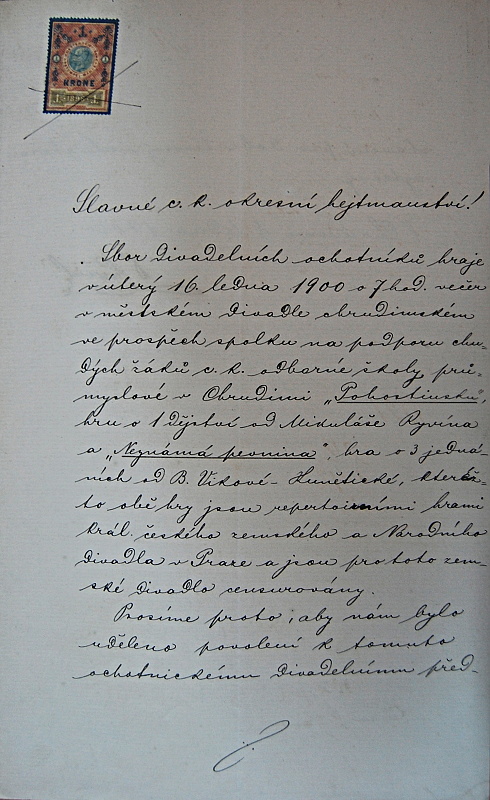 1
KRONE
Slavné c. k. okresní hejtmanství!
Sbor divadelních ochotníků hraje
v úterý 16. ledna 1900 o 7 hod. večer
v městském divadle chrudimském
ve prospěch spolku na podporu chu-
dých žáků c. k. odborné školy prů-
myslové v Chrudimi „Pohostinsku",
hru o 1 dějství od Mikuláše Ryvína
a „Neznámá pevnina", hra o 3 jedná-
ních od B. Vikové-Kunětické, kteréž-
to obě hry jsou repertoirními hrami
král. českého zemského a Národního
divadla v Praze a jsou pro toto zem-
ské divadlo censurovány.
Prosíme proto, aby nám bylo
uděleno povolení k tomuto
ochotnickému divadelnímu před-